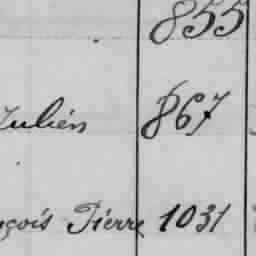 855
Julien 867
nçois Pierre 1031